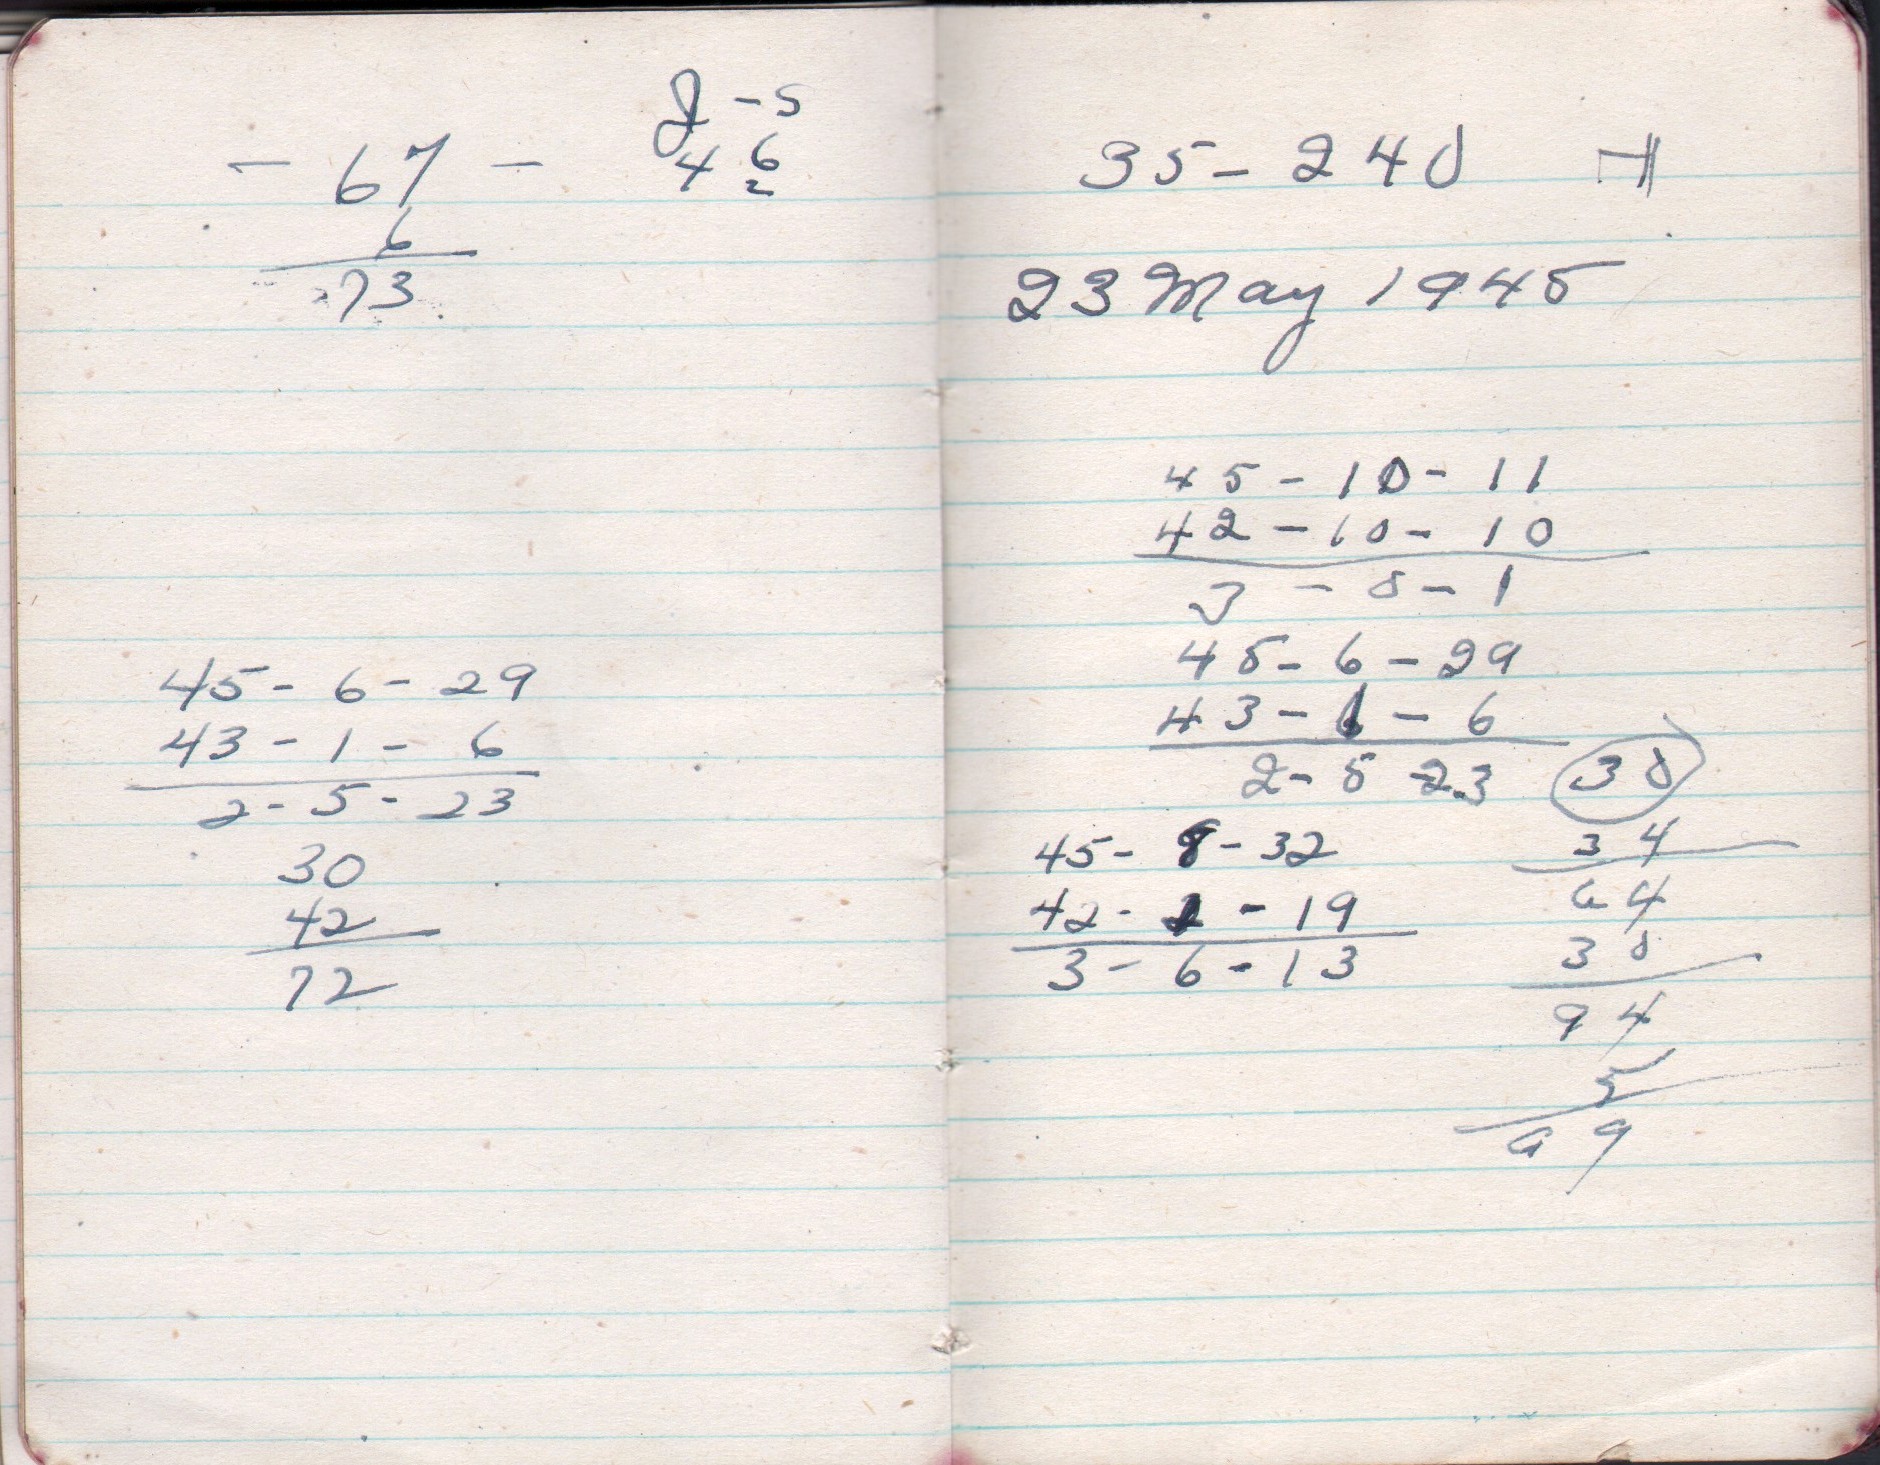 J - 5
- 67 - 46
2
6
73
45 - 6 - 29
43 - 1 - 6
2 - 5 - 23
30
42
72
35 - 240 H
23 May 1945
45 - 10 - 11
42 - 10 - 10
3 - 0 - 1
45 - 6 - 29
43 - 1 - 6
2 - 5 - 23 30
45 - 8 - 32 34
64
42 - 2 - 19
30
3 - 6 - 13
94
5
99